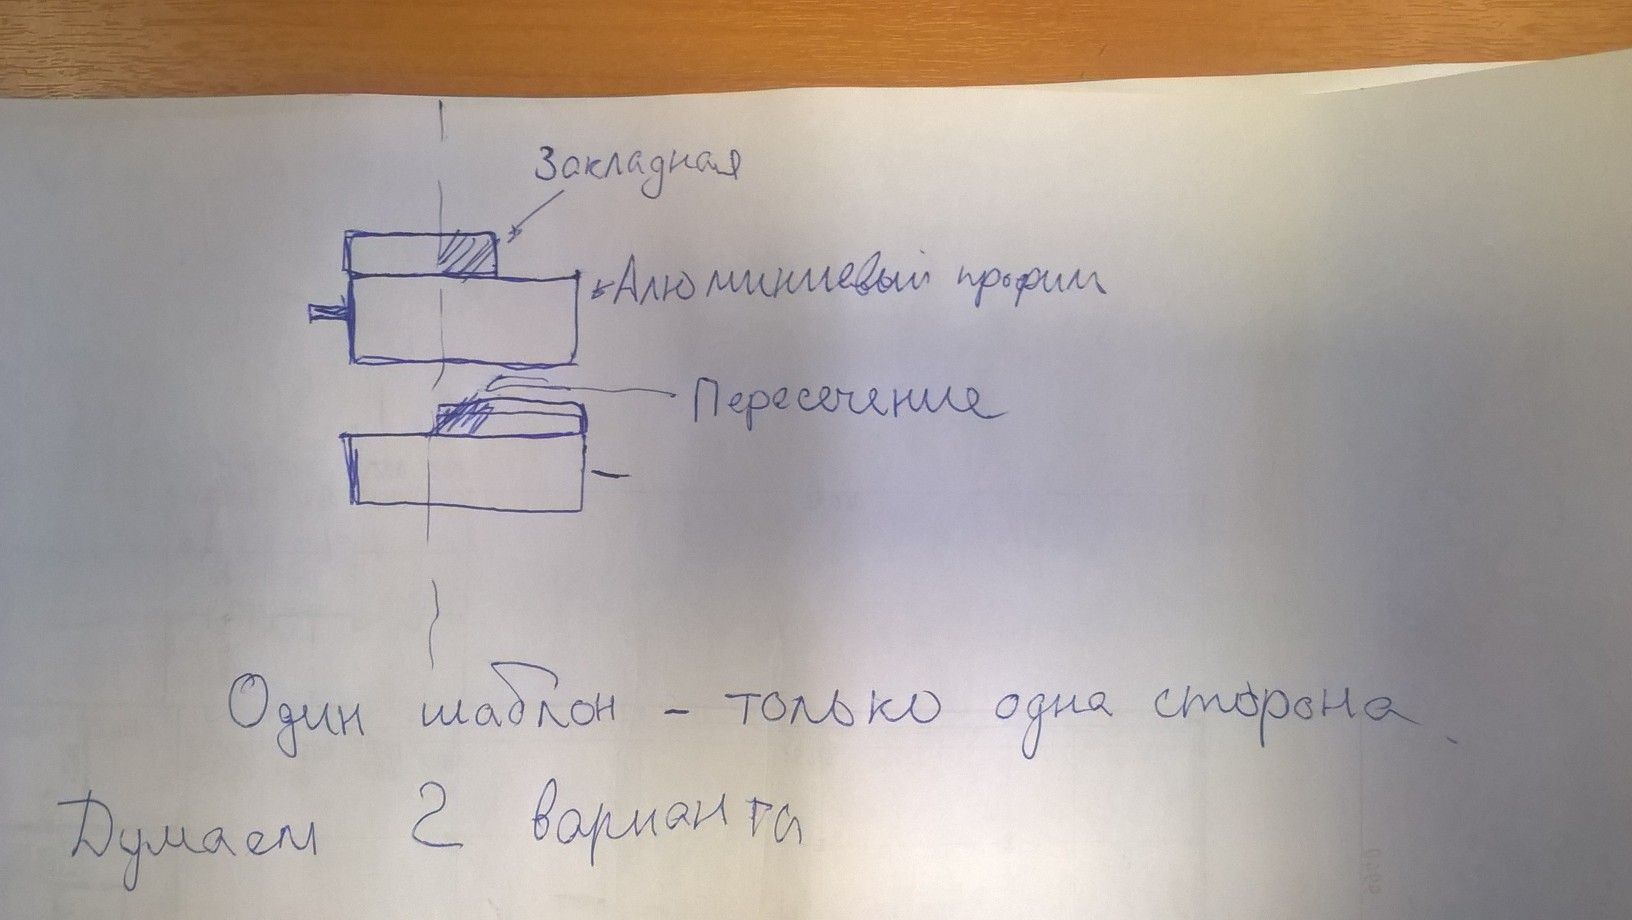 Закладная
Алюминиевый профиль
Пересечение
Один шаблон - только одна сторона.
Думаем 2 варианта